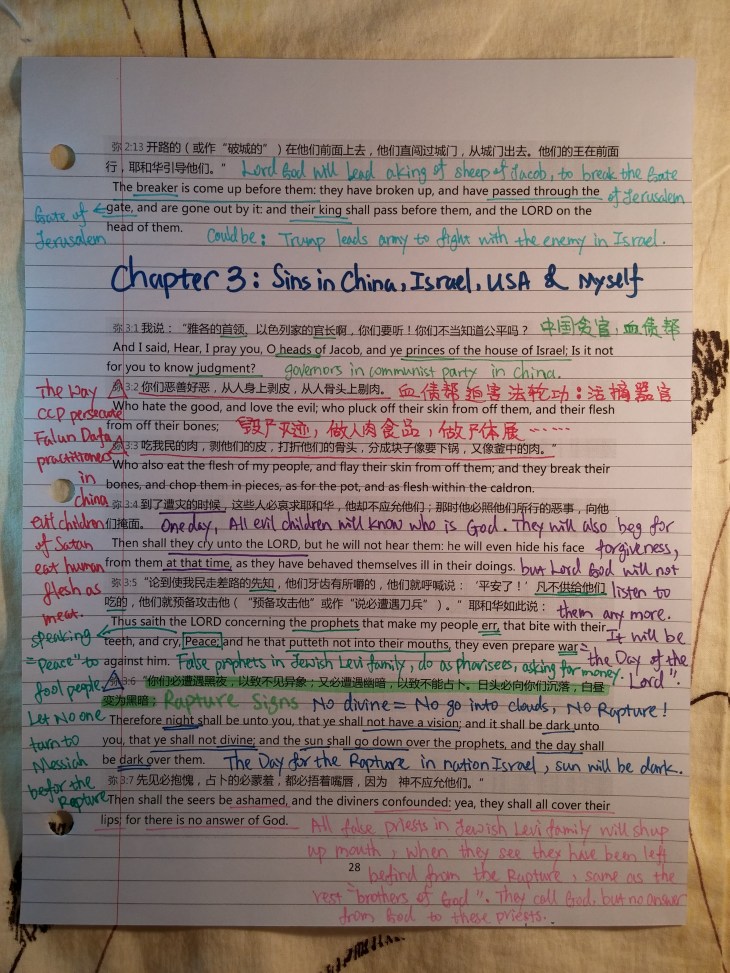 弥 2:13 开路的（或作“破城的”）在他们前面上去，他们直闯过城门，从城门出去。他们的王在前面
行，耶和华引导他们。” Lord God will lead a king of sheep of Jacob, to break the Gate
The breaker is come up before them: they have broken up, and have passed through the of Jerusalem
gate, and are gone out by it: and their king shall pass before them, and the LORD on the
head of them.
Gate of
Jerusalem
Could be: Trump leads army to fight with the enemy in Israel.
Chapter 3: Sins in China, Israel, USA & Myself
弥 3:1 我说：“雅各的首领，以色列家的官长啊，你们要听！你们不当知道公平吗？ 中国贪官，血债帮
And I said, Hear, I pray you, O heads of Jacob, and ye princes of the house of Israel; Is it not
for you to know judgment? governors in communist party in china.
弥 3:2 你们恶善好恶，从人身上剥皮，从人骨头上剔肉。 血债帮迫害法轮功：活摘器官
Who hate the good, and love the evil; who pluck off their skin from off them, and their flesh
from off their bones; 毁尸灭迹，做人肉食品，做尸体展……
弥 3:3 吃我民的肉，剥他们的皮，打折他们的骨头，分成块子像要下锅，又像釜中的肉。”
Who also eat the flesh of my people, and flay their skin from off them; and they break their
bones, and chop them in pieces, as for the pot, and as flesh within the caldron.
The way
CCP persecute
Falun Dafa
practitioners
in
china
evil children
of Satan
eat human
flesh as
meat.
弥 3:4 到了遭灾的时候，这些人必哀求耶和华，他却不应允他们；那时他必照他们所行的恶事，向他
们掩面。 One day, All evil children will know who is God. They will also beg for
Then shall they cry unto the LORD, but he will not hear them: he will even hide his face forgiveness,
from them at that time, as they have behaved themselves ill in their doings. but Lord God will not
弥 3:5 “论到使我民走差路的先知，他们牙齿有所嚼的，他们就呼喊说：‘平安了！’凡不供给他们 listen to
吃的，他们就预备攻击他（“预备攻击他”或作“说必遭遇刀兵”）。”耶和华如此说： them any more.
Thus saith the LORD concerning the prophets that make my people err, that bite with their It will be
teeth, and cry, Peace; and he that putteth not into their mouths, they even prepare war = the Day of the
against him. False prophets in Jewish Levi family, do as pharisees, asking for money. Lord".
speaking
"peace" to
fool people
Let No one
turn to
Messiah
befor the
Rapture
弥 3:6 “你们必遭遇黑夜，以致不见异象；又必遭遇幽暗，以致不能占卜。日头必向你们沉落，白昼
变为黑暗； Rapture Signs No divine = No go into clouds, No Rapture!
Therefore night shall be unto you, that ye shall not have a vision; and it shall be dark unto
you, that ye shall not divine; and the sun shall go down over the prophets, and the day shall
be dark over them. The Day for the Rapture in nation Israel, sun will be dark.
弥 3:7 先见必抱愧，占卜的必蒙羞，都必捂着嘴唇，因为 神不应允他们。”
Then shall the seers be ashamed, and the diviners confounded; yea, they shall all cover their
lips; for there is no answer of God. All false priests in Jewish Levi family will shup
up mouth, when they see they have been left
28
befind from the Rapture, same as the
rest "brothers of God". They call God, but no answer
from God to these priests.